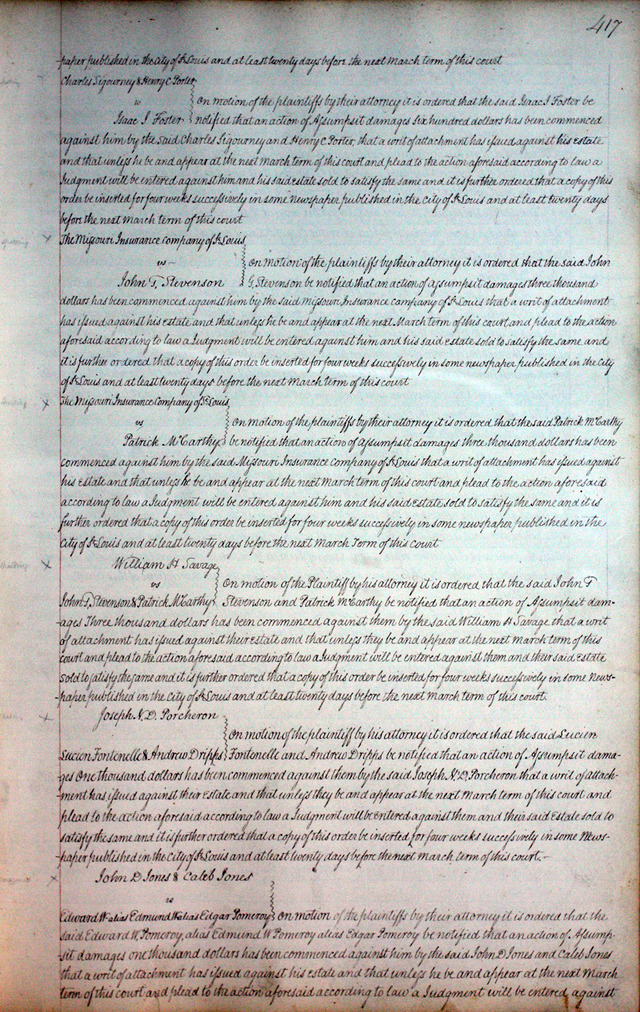 417
paper published in the City of St Louis and at least twenty days before the next March term of this court
Charles Sigourney & Henry C. Porter
vs
On motion of the plaintiffs by their attorney it is ordered that the said Isaac I Foster be
Isaac I Foster
notified that an action of Assumpsit damages Six hundred dollars has been commenced
against him by the said Charles Sigourney and Henry C Porter, that a writ of attachment has issued against his Estate
and that unless he be and appear at the next March term of this court and plead to the action aforesaid according to law a
Judgment will be entered against him and his said estate sold to satisfy the same and it is further ordered that a copy of this
order be inserted for four weeks successively in some Newspaper published in the City of St Louis and at least twenty days
before the next March term of this court
The Missouri Insurance Company of St Louis
vs
On motion of the plaintiffs by their attorney it is ordered that the said John
John G. Stevenson
G. Stevenson be notified that an action of assumpsit damages three thousand
dollars has been commenced against him by the said Missouri Insurance company of St Louis that a writ of attachment
has issued against his Estate and that unless he be and appear at the next March term of this court and plead to the action
aforesaid according to law a Judgment will be entered against him and his said estate sold to satisfy the same and
it is further ordered that a copy of this order be inserted for four weeks successively in some newspaper published in the City
of St Louis and at least twenty days before the next March term of this court
The Missouri Insurance Company of St Louis
vs
On motion of the plaintiffs by their attorney it is ordered that the said Patrick McCarthy
Patrick McCarthy
be notified that an action of assumpsit damages three thousand dollars has been
commenced against him by the said Missouri Insurance Company of St Louis that a writ of attachment has issued against
his Estate and that unless he be and appear at the next March term of this court and plead to the action aforesaid
according to law a Judgment will be entered against him and his said estate sold to satisfy the same and it is
further ordered that a copy of this order be inserted for four weeks successively in some newspaper published in the
City of St Louis and at least twenty days before the next March Term of this court
William H Savage
vs
On motion of the Plaintiff by his attorney it is ordered that the said John F
John F. Stevenson & Patrick McCarthy
Stevenson and Patrick McCarthy be notified that an action of Assumpsit dam-
-ages Three thousand dollars has been commenced against them by the said William H Savage that a writ
of attachment has issued against their Estate and that unless they be and appear at the next March term of this
court and plead to the action aforesaid according to law a Judgment will be entered against them and their said Estate
sold to satisfy the same and it is further ordered that a copy of this order be inserted for four weeks successively in some News-
-paper published in the City of St Louis and at least twenty days before the next March term of this court.
Joseph N. D. Porcheron
On motion of the plaintiff by his attorney it is ordered that the said Lucien
Lucien Fontenelle & Andrew Dripps
Fontenelle and Andrew Dripps be notified that an action of Assumpsit dama-
-ges One thousand dollars has been commenced against them by the said Joseph N. D. Porcheron that a writ of attach-
-ment has issued against their Estate and that unless they be and appear at the next March term of this court and
plead to the action aforesaid according to law a Judgment will be entered against them and their said Estate sold to
satisfy the same and it is further ordered that a copy of this order be inserted for four weeks successively in some News-
-paper published in the City of St Louis and at least twenty days before the next March term of this court.-
John D Jones & Caleb Jones
vs
Edward W alias Edmund W alias Edgar Pomeroy
On motion of the plaintiffs by their attorney it is ordered that the
said Edward W. Pomeroy, alias Edmund W Pomeroy alias Edgar Pomeroy be notified that an action of Assump-
-sit damages one thousand dollars has been commenced against him by the said John D Jones and Caleb Jones
that a writ of attachment has issued against his estate and that unless he be and appear at the next March
term of this court and plead to the action aforesaid according to law a Judgment will be entered against